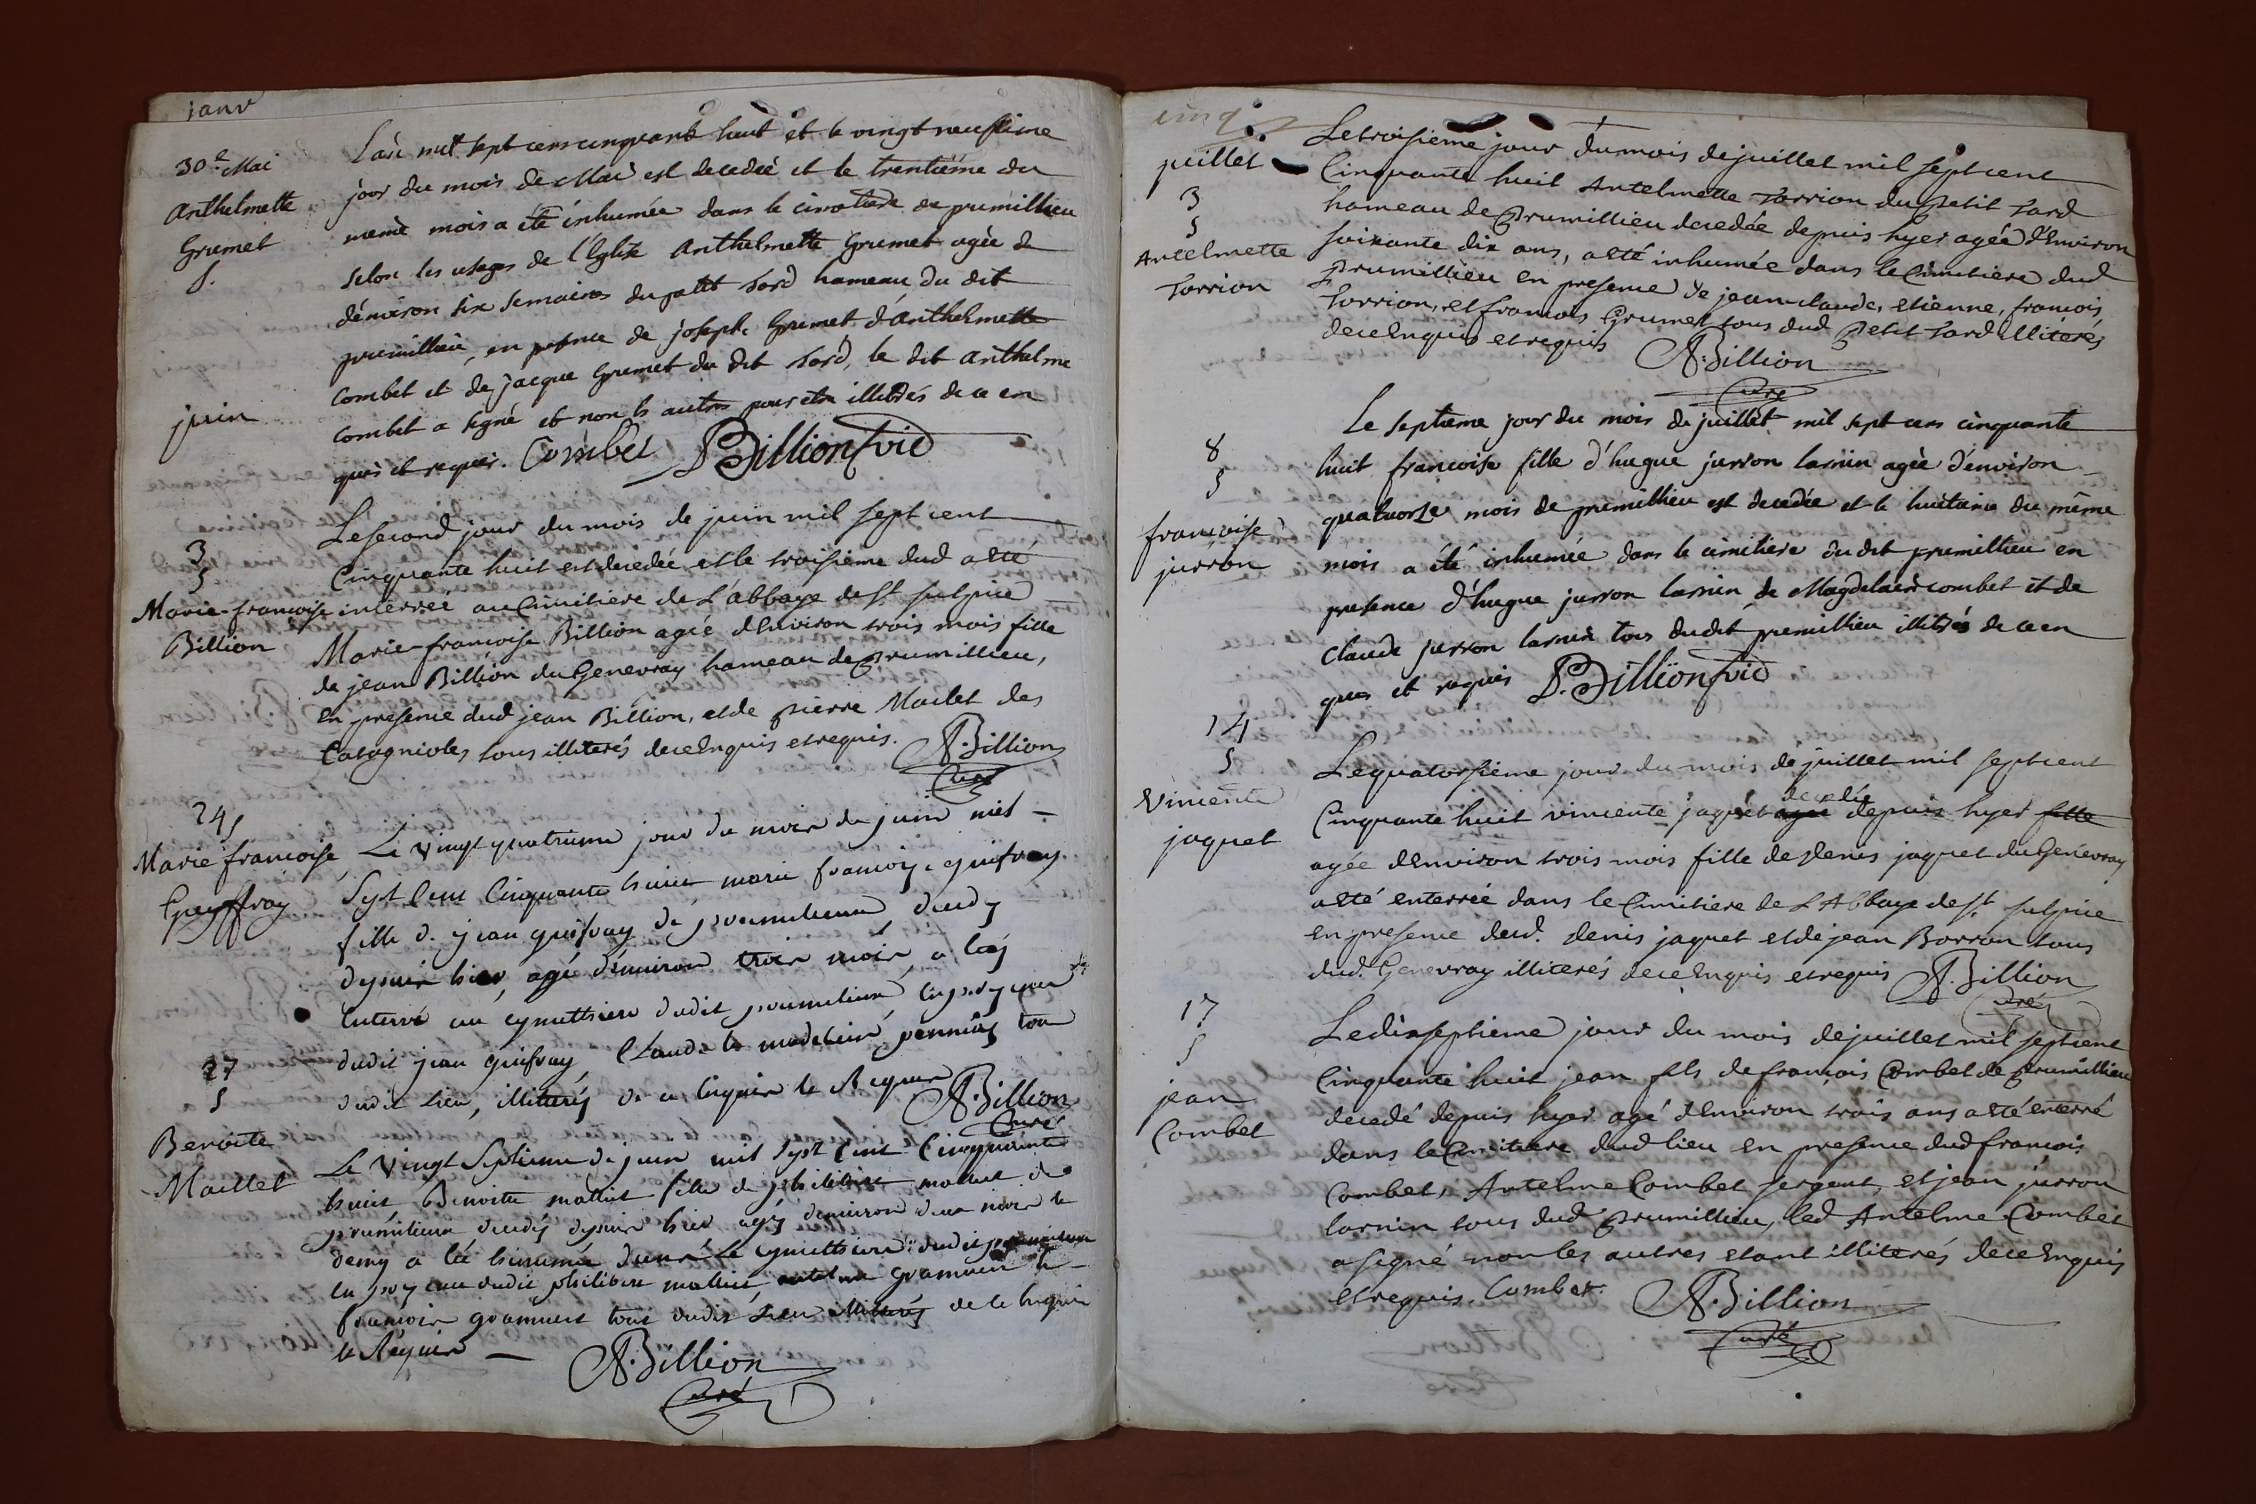 janv
30e. Mai
Anthelmette
Grumet
S.
L'an mil sept cens cinquante huit et le vingt neufvième
jour du mois de Mai est decedée et le trentième du
meme mois a été inhumée dans le cimetière de prumillieu
selon les usages de l'Eglise Anthelmette Grumet agée de
d'environ six semaines du petit Tard hameau du dit
prumillieu, en presence de joseph Grumet d'Anthelmette
Combet et de jacque Grumet du dit Tard, le dit Anthelme
Combet a signé et non les autres pour etre illitérés de ce en
quis et requis. Combet P. Billion vic
juin
3
S
Marie-françoise
Billion
Le second jour du mois de juin mil sept cent
Cinquante huit est decedée et le troisieme dud a été
interreé au Cimitiere de L'abbaye de St. sulpice
Marie-françoise Billion agée d'Environ trois mois fille
de jean Billion du Genevray hameau de prumillieu,
En presence dud jean Billion, et de pierre Mailet des
Catagnioles tous illiterés de ce Enquis et requis. A. Billion
Curé
24
S
Marie françoise
Guyffray
Le vingt quatrieme jour du mois de juin mil
Sept Cent Cinquante huit marie françoise guifray
fille de jean guifray de prumilieux decedé
depuis hier, agé d'environ trois mois, a été
Enterré au cymettiere dudit prumilieu, en presence
dudit jean guifray, Claude le madelein pernin tous
dudit Lieu, illiterés de ce Enquis et Requis A. Billion
Curé
27
S
Benoite
Maillet
Le vingt Septieme de juin mil Sept Cent Cinquante
huit Benoite malliet fille de philibert malliet de
prumilieux decedé depuis hier agé d'environ deux mois et
demy a été inhumée dans Le cymettiere dudit prumilieu
en presence dudit philibert malliet, antelme grammet et
francois grammet tous dudit Lieu illiterés de ce Enquis
et Requis A. Billion
Curé
cinq
juillet
3
S
Antelmette
Torrion
Le troisieme jour du mois de juillet mil sept cent
Cinquante huit Antelmette Torrion du Petit Tard
hameau de Prumillieu decedée depuis hyer agée d'Environ
soixante dix ans, a été inhumée dans le Cimitiere dud
Prumillieu en presence de jean-claude, etienne, françois
Torrion, et francois Grumet tous dud Petit Tard illiterés
de ce Enquis et requis A. Billion
Curé
8
S
françoise
jurron
Le septieme jour du mois de juillet mil sept cens cinquante
huit françoise fille d'hugue jurron larnin agée d'environ
quatuorze mois de prumillieu est decedée et le huitieme du même
mois a été inhumée dans le cimitière du dit prumillieu en
presence d'hugue jurron larnin de Magdelaine combet et de
claude jurron larnin tous dudit prumillieu illitérés de ce en
quis et requis P. Billion vic
14
S
Vincente
jaquet
Le quatorsieme jour du mois de juillet mil sept cent
Cinquante huit vincente jaquet agée decedée depuis hyer fille
agée d'Environ trois mois fille de denis jaquet du Genevray
a été enterrée dans le Cimitiere de L'Abbaye de St. sulpice
en presence dud. denis jaquet et de jean Borron tous
dud. Genevray illiterés de ce Enquis et requis A. Billion
Curé
17
S
jean
Combet
Le dixseptieme jour du mois de juillet mil sept cent
Cinquante huit jean fils de françois Combet de Prumillieu
decedé depuis hyer agé d'Environ trois ans a été enterré
dans le Cimitiere dud lieu en presence dud francois
Combet, Antelme Combet sergent, et jean jurron
larnin tous dud Prumillieu, led Antelme Combet
a signé non les autres etant illiterés de ce Enquis
et requis. Combet. A. Billion
Curé